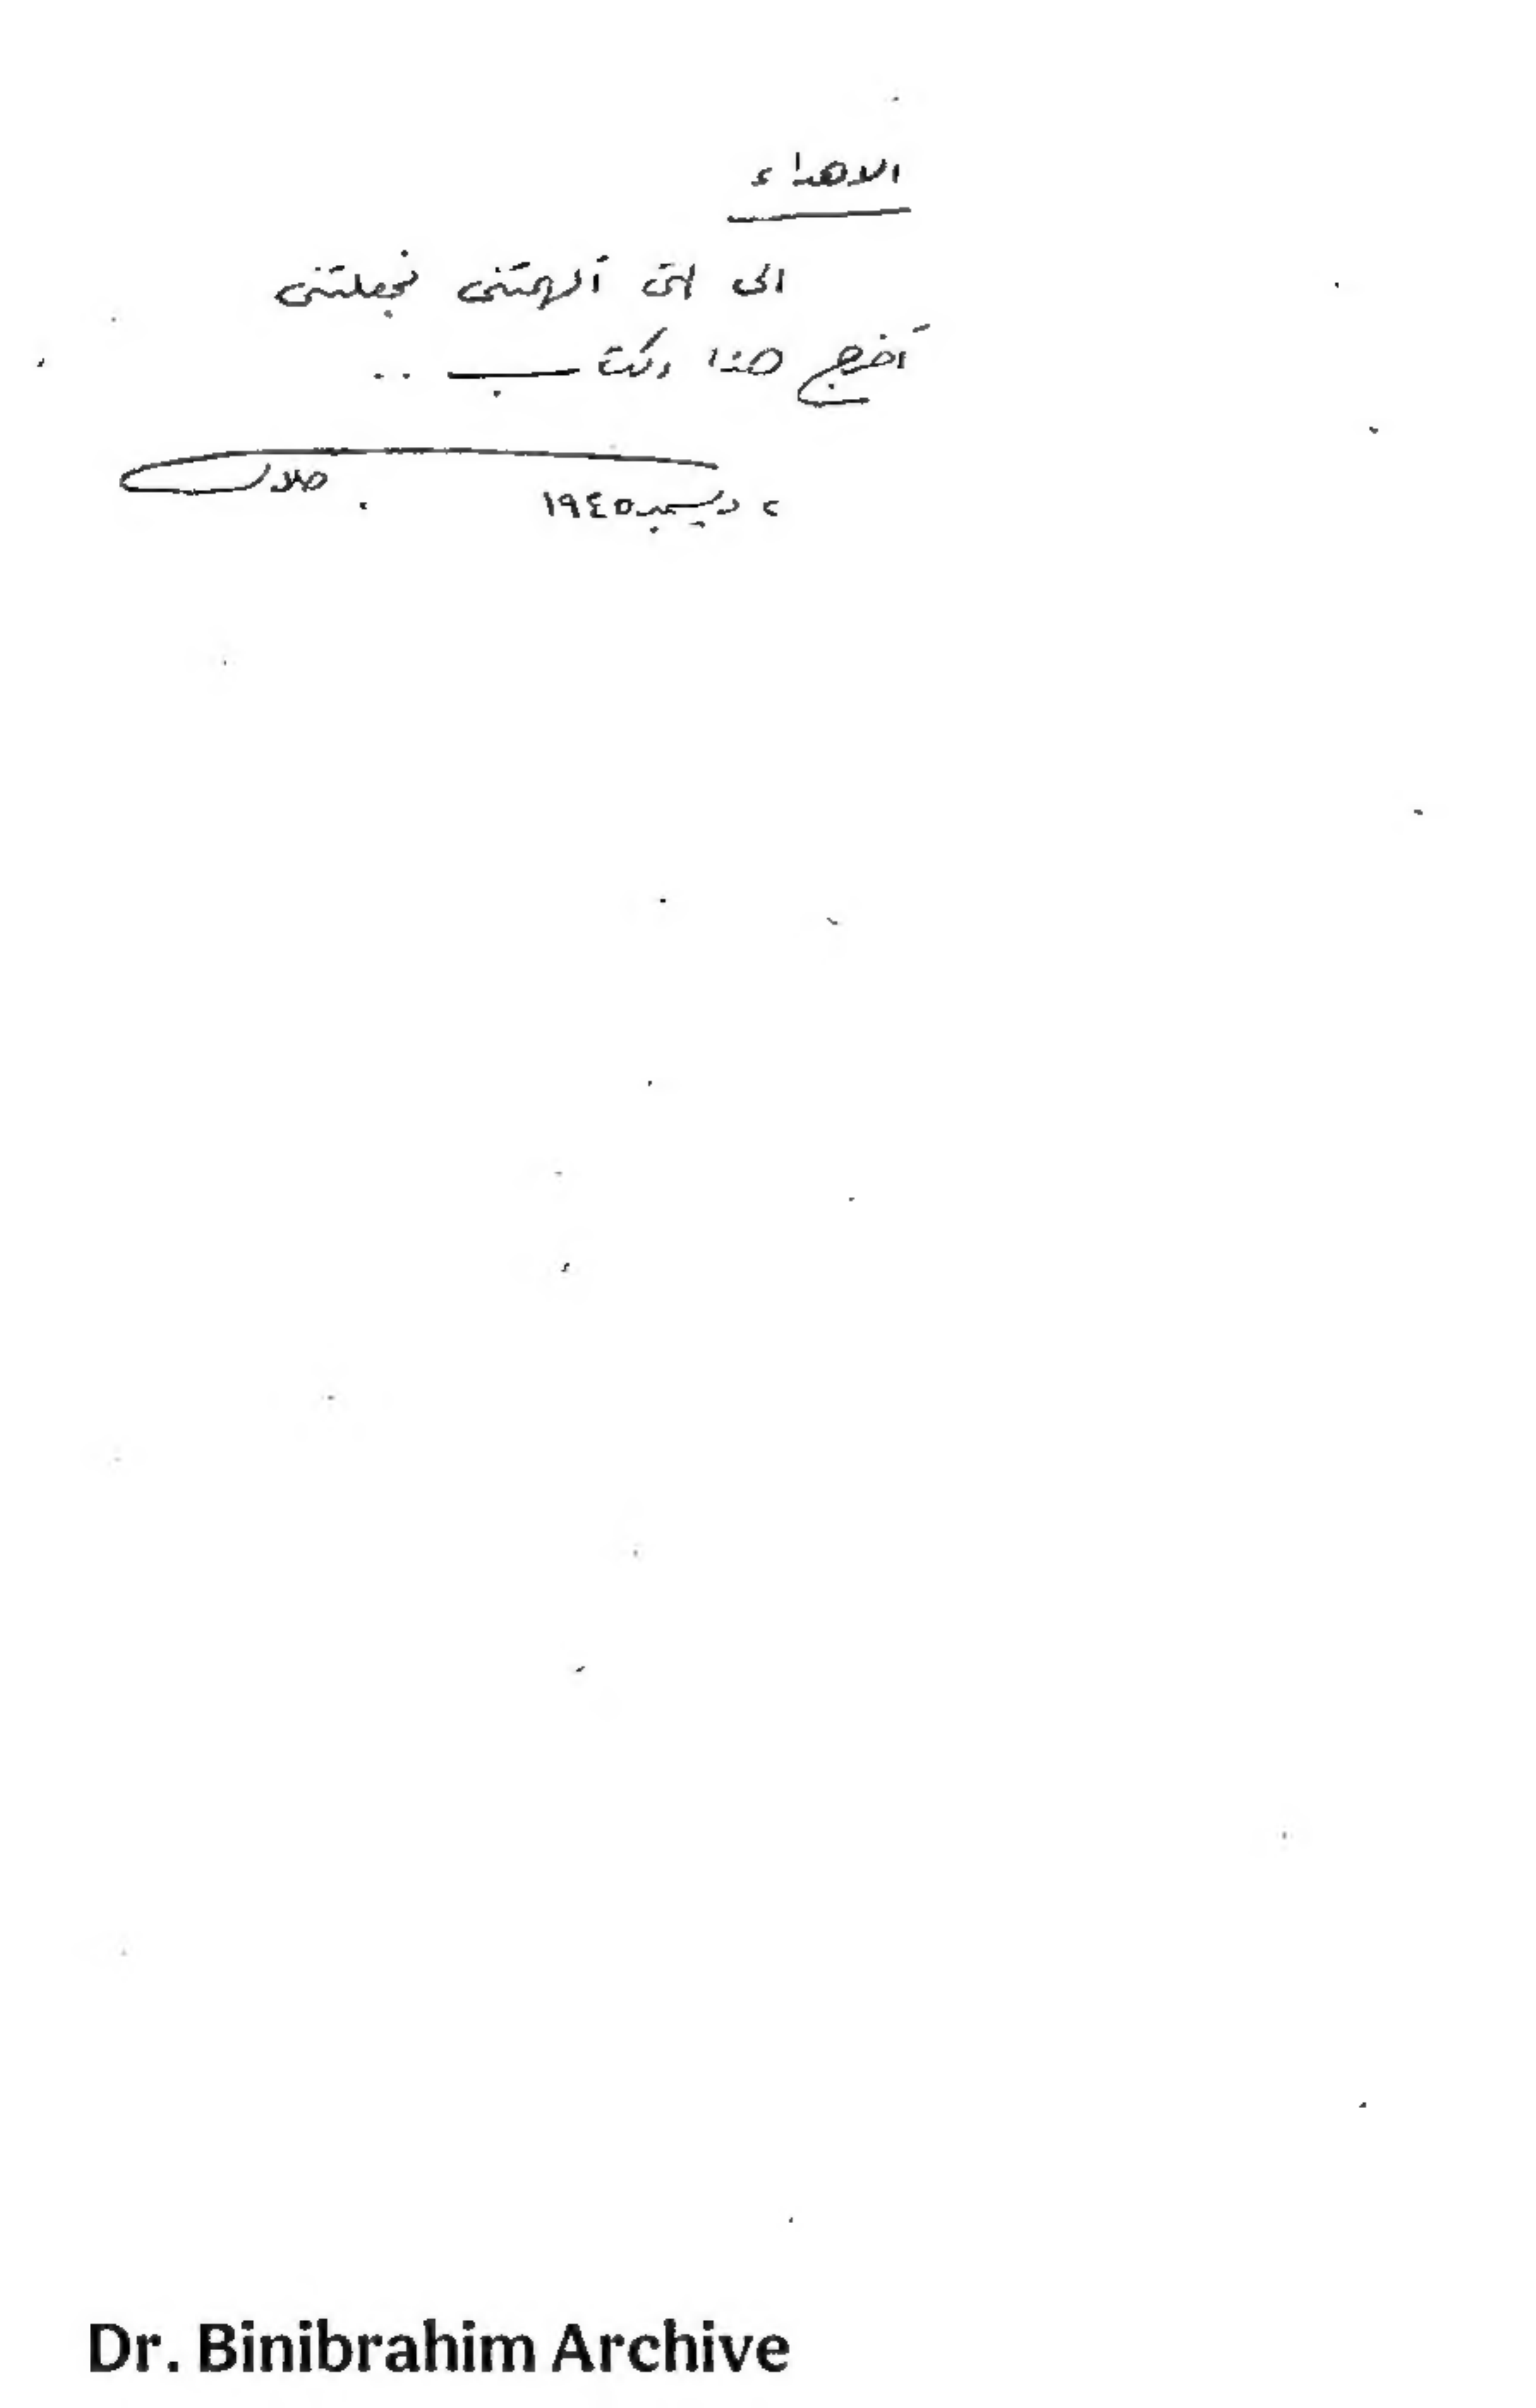 الاهداء
الى التى ألهمتنى فجعلتنى
أخرج هذا الكتاب ..
٢ ديسمبر ١٩٤٥
Dr. Binibrahim Archive